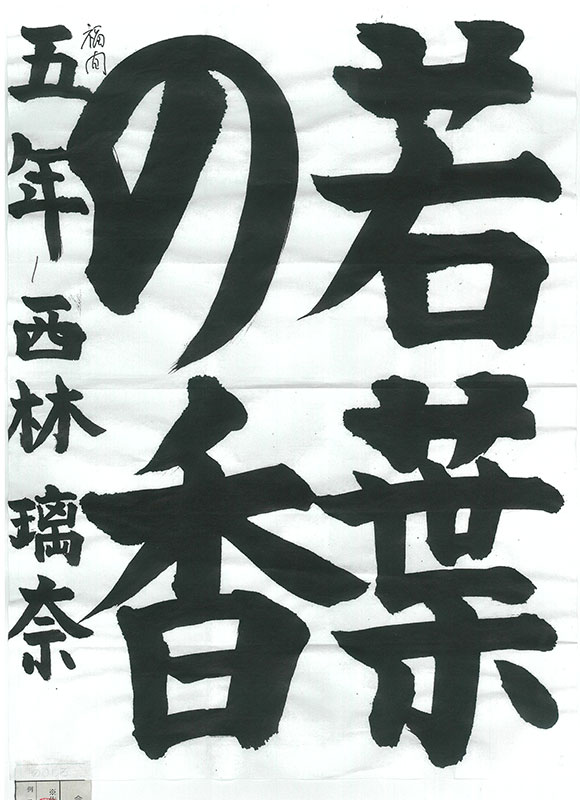 若葉
の香
五年 西林璃奈
福间